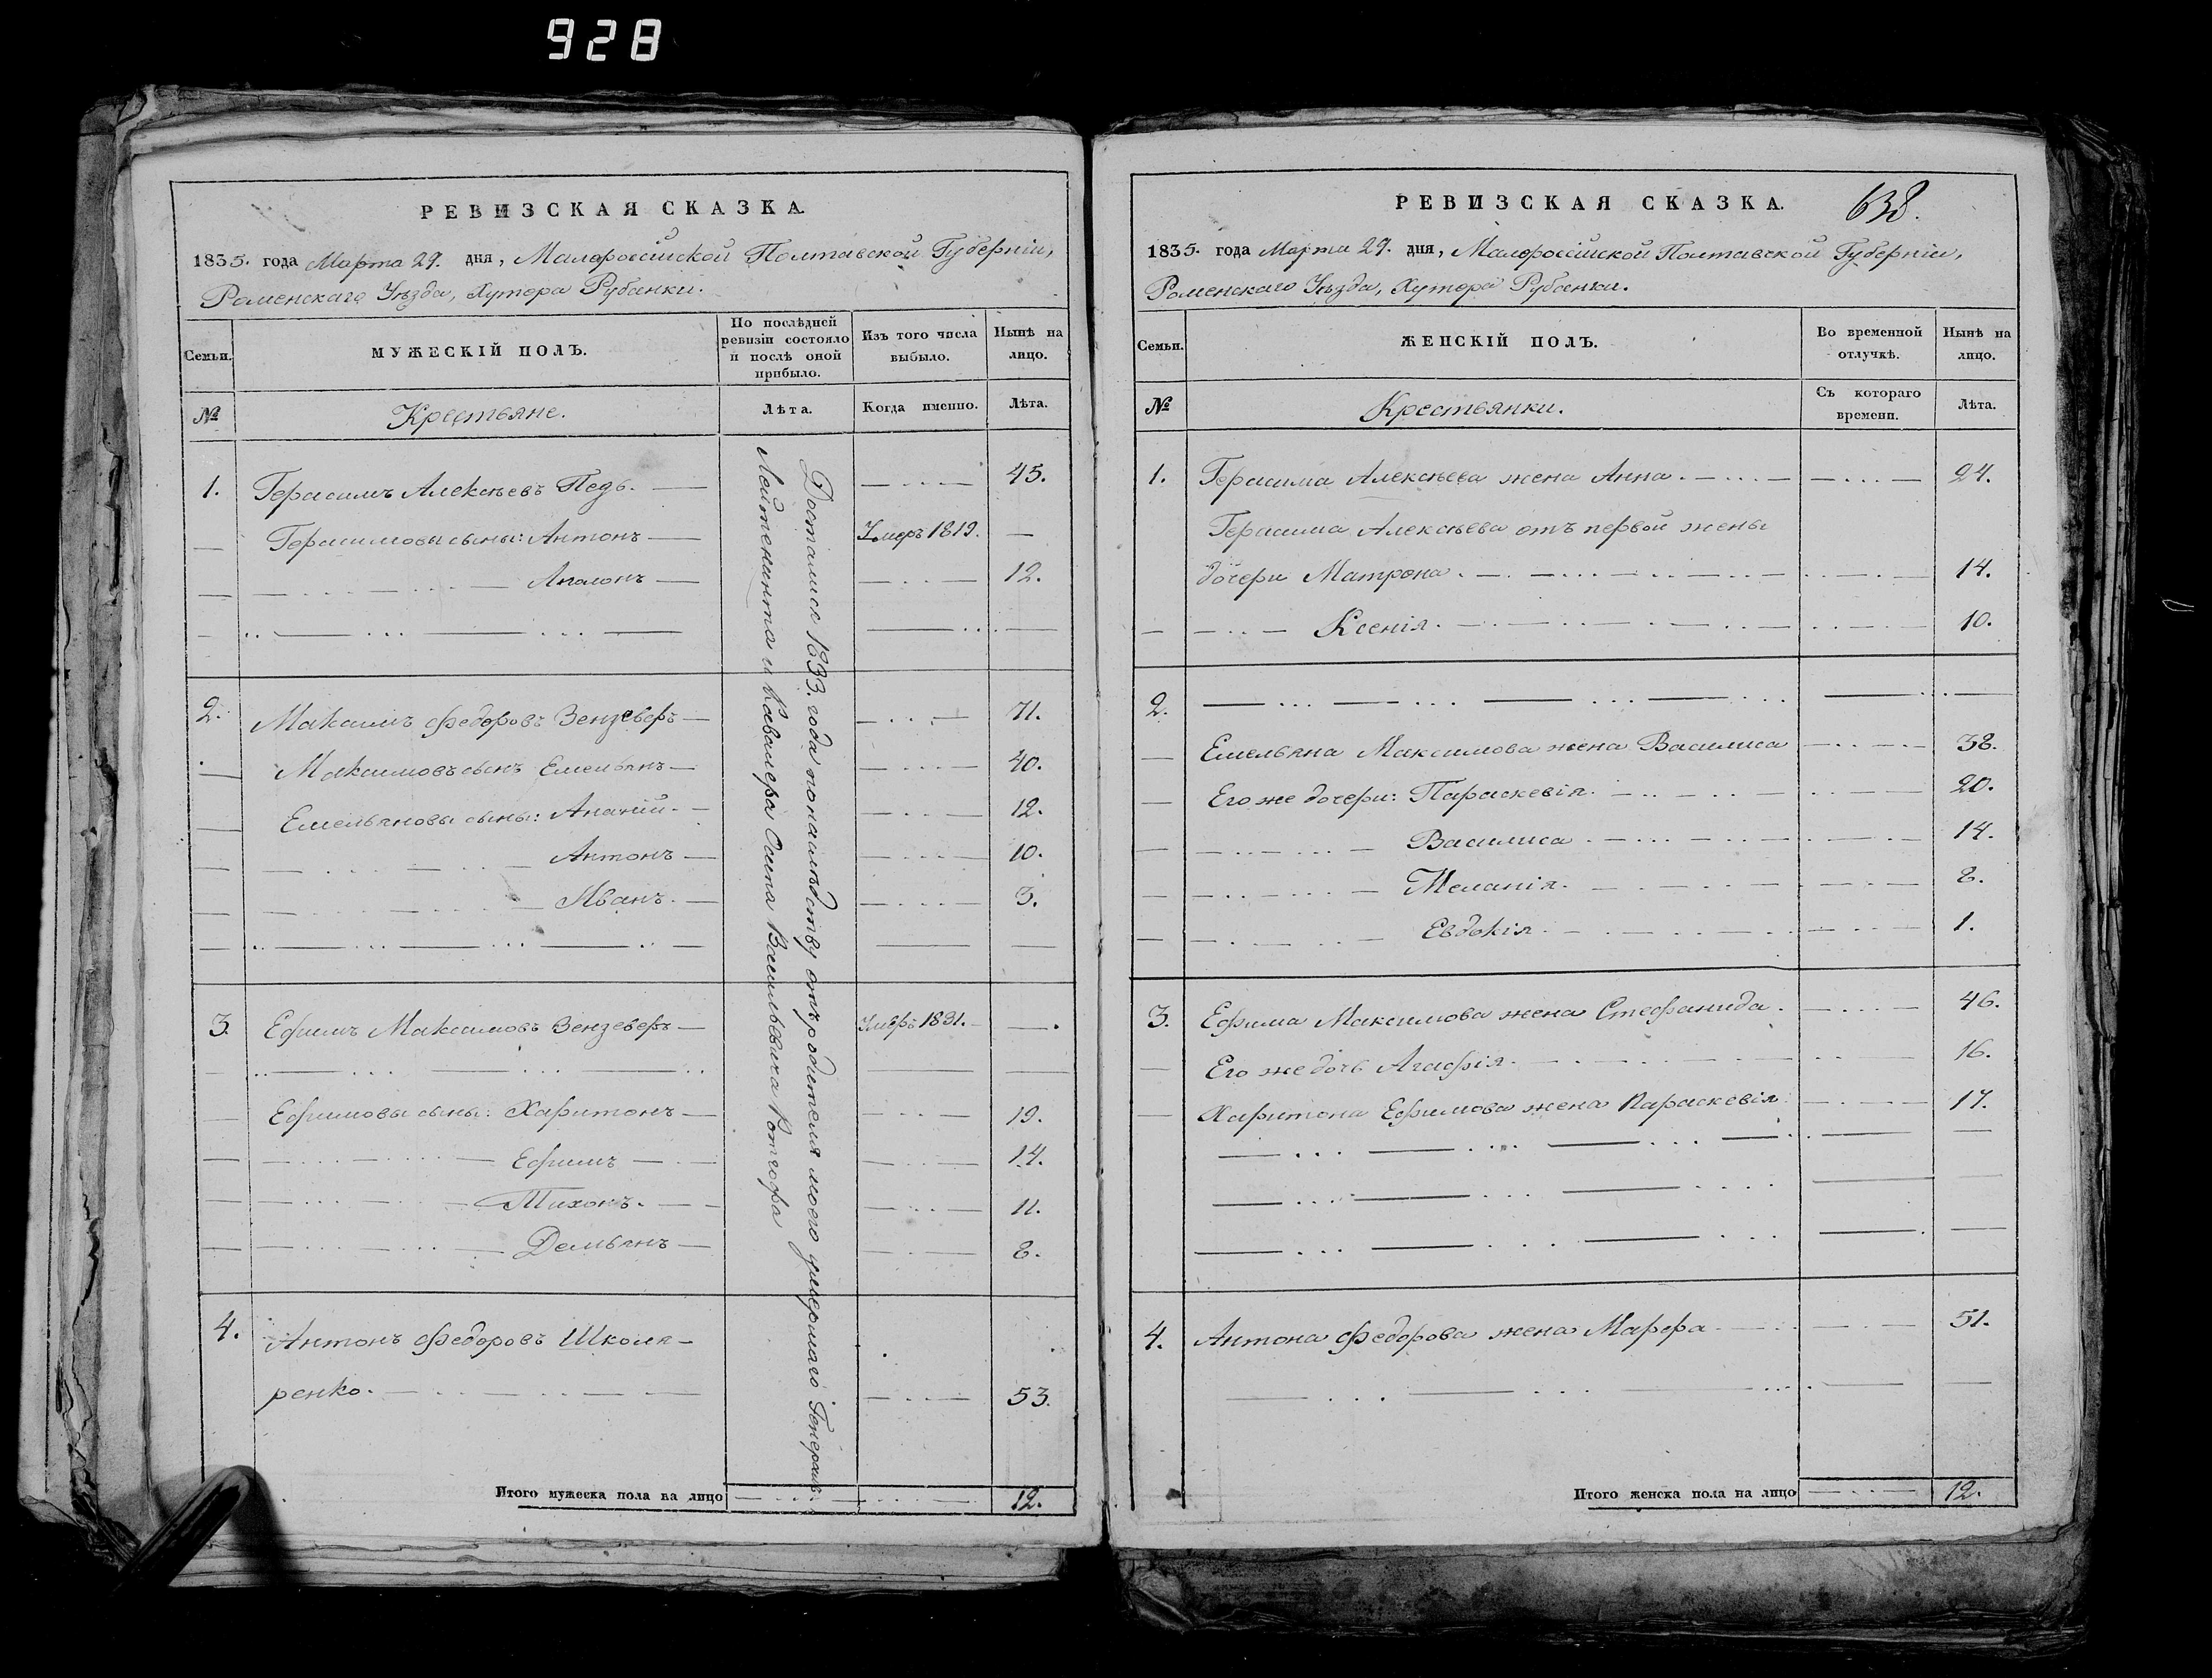 928
РЕВИЗСКАЯ СКАЗКА.
1835. года Марта 29. дня, Малороссійской Полтавской Губерніи,
Роменскаго Уѣзда, Хутора Рубанки.
Семьи.
МУЖЕСКІЙ ПОЛЪ.
По послѣдней ревизіи состояло и послѣ оной прибыло.
Изъ того числа выбыло.
Нынѣ на лицо.
№
Крестьяне.
Лѣта.
Когда именно.
Лѣта.
Досталися 1833. года понаслѣдству отъ родителя моего умершаго Генералъ
Лейтенанта и Кавалера Осипа Васильевича
1. Герасимъ Алексѣевъ Педь. 45.
Герасимовы сыны: Антонъ Умеръ 1819.
Аполонъ 12.
2. Максимъ Федоровъ Зензеверъ 71.
Максимовъ сынъ Емельянъ 40.
Емельяновы сыны: Ананій 12.
Антонъ 10.
Иванъ. 3.
3. Ефимъ Максимовъ Зензеверъ Умеръ 1831.
Ефимовы сыны: Харитонъ 19.
Ефимъ 14.
Тихонъ. 11.
Демьянъ 8.
4. Антонъ Федоровъ Школя-
ренко. 53.
Итого мужеска пола на лицо 12.
РЕВИЗСКАЯ СКАЗКА.
638.
1835. года Марта 29. дня, Малороссійской Полтавской Губерніи,
Роменскаго Уѣзда, Хутора Рубанки.
Семьи.
ЖЕНСКІЙ ПОЛЪ.
Во временной отлучкѣ.
Нынѣ на лицо.
№
Крестьянки.
Съ котораго времени.
Лѣта.
1. Герасима Алексѣева жена Анна. 24.
Герасима Алексѣева отъ первой жены
дочери Матрона. 14.
Ксенія. 10.
2.
Емельяна Максимова жена Василиса 38.
Его же дочери: Параскевія. 20.
Василиса 14.
Меланія. 8.
Евдокія 1.
3. Ефима Максимова жена Стефанида. 46.
Его же дочь Агафія. 16.
Харитона Ефимова жена Параскевія 17.
4. Антона Федорова жена Марфа 51.
Итого женска пола на лицо 12.